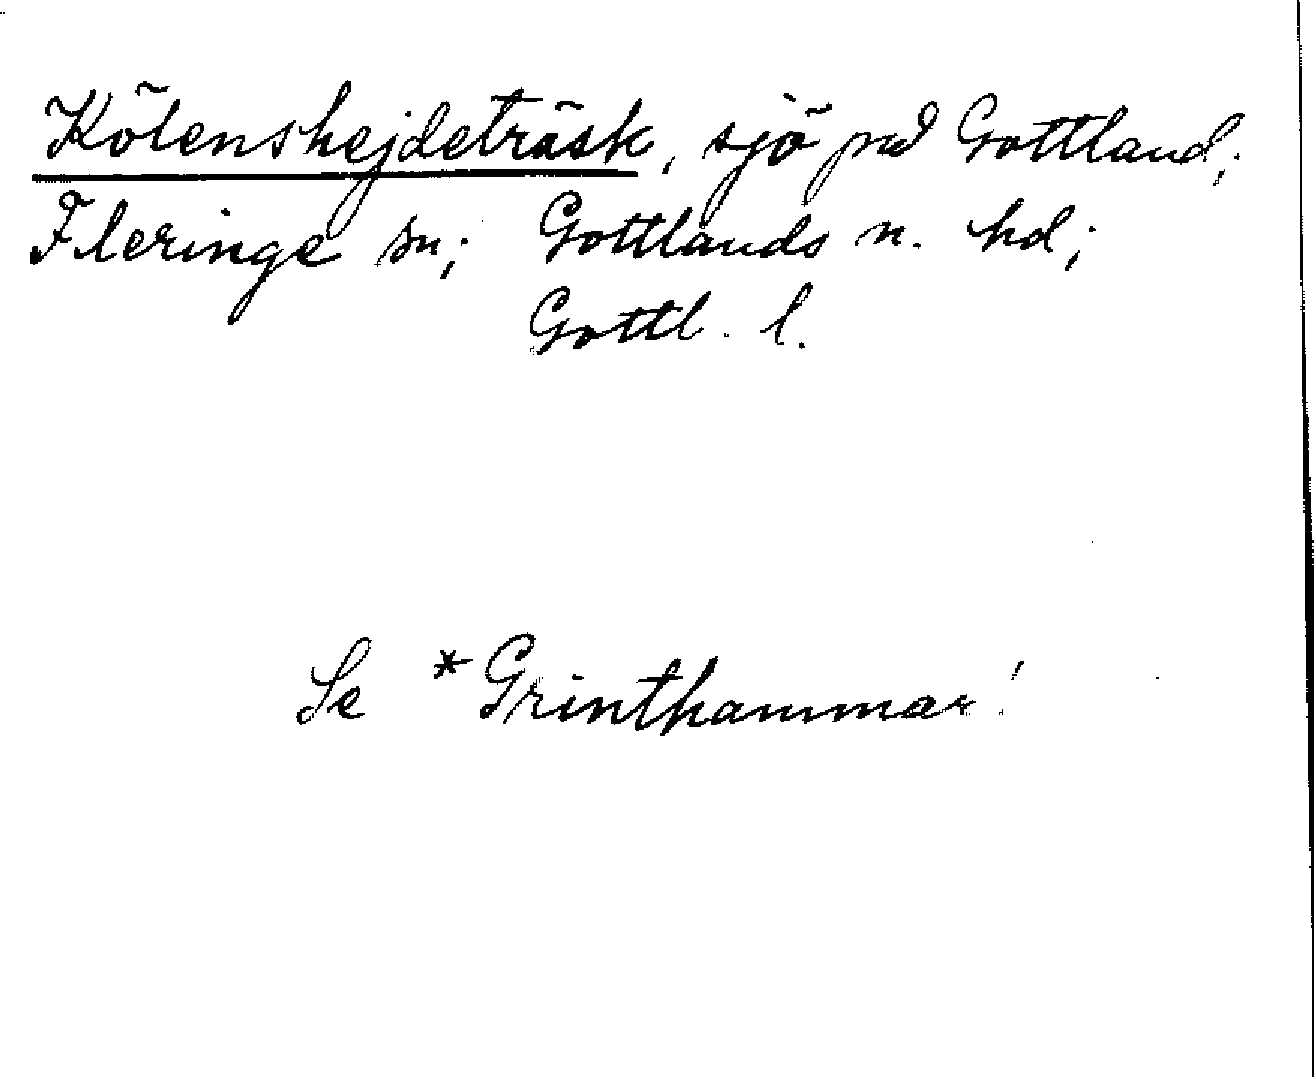 Kölenshejdeträsk, sjö på Gottland;
Fleringe sn; Gottlands n. hd;
Gottl. l.
Se *Grinthammar!